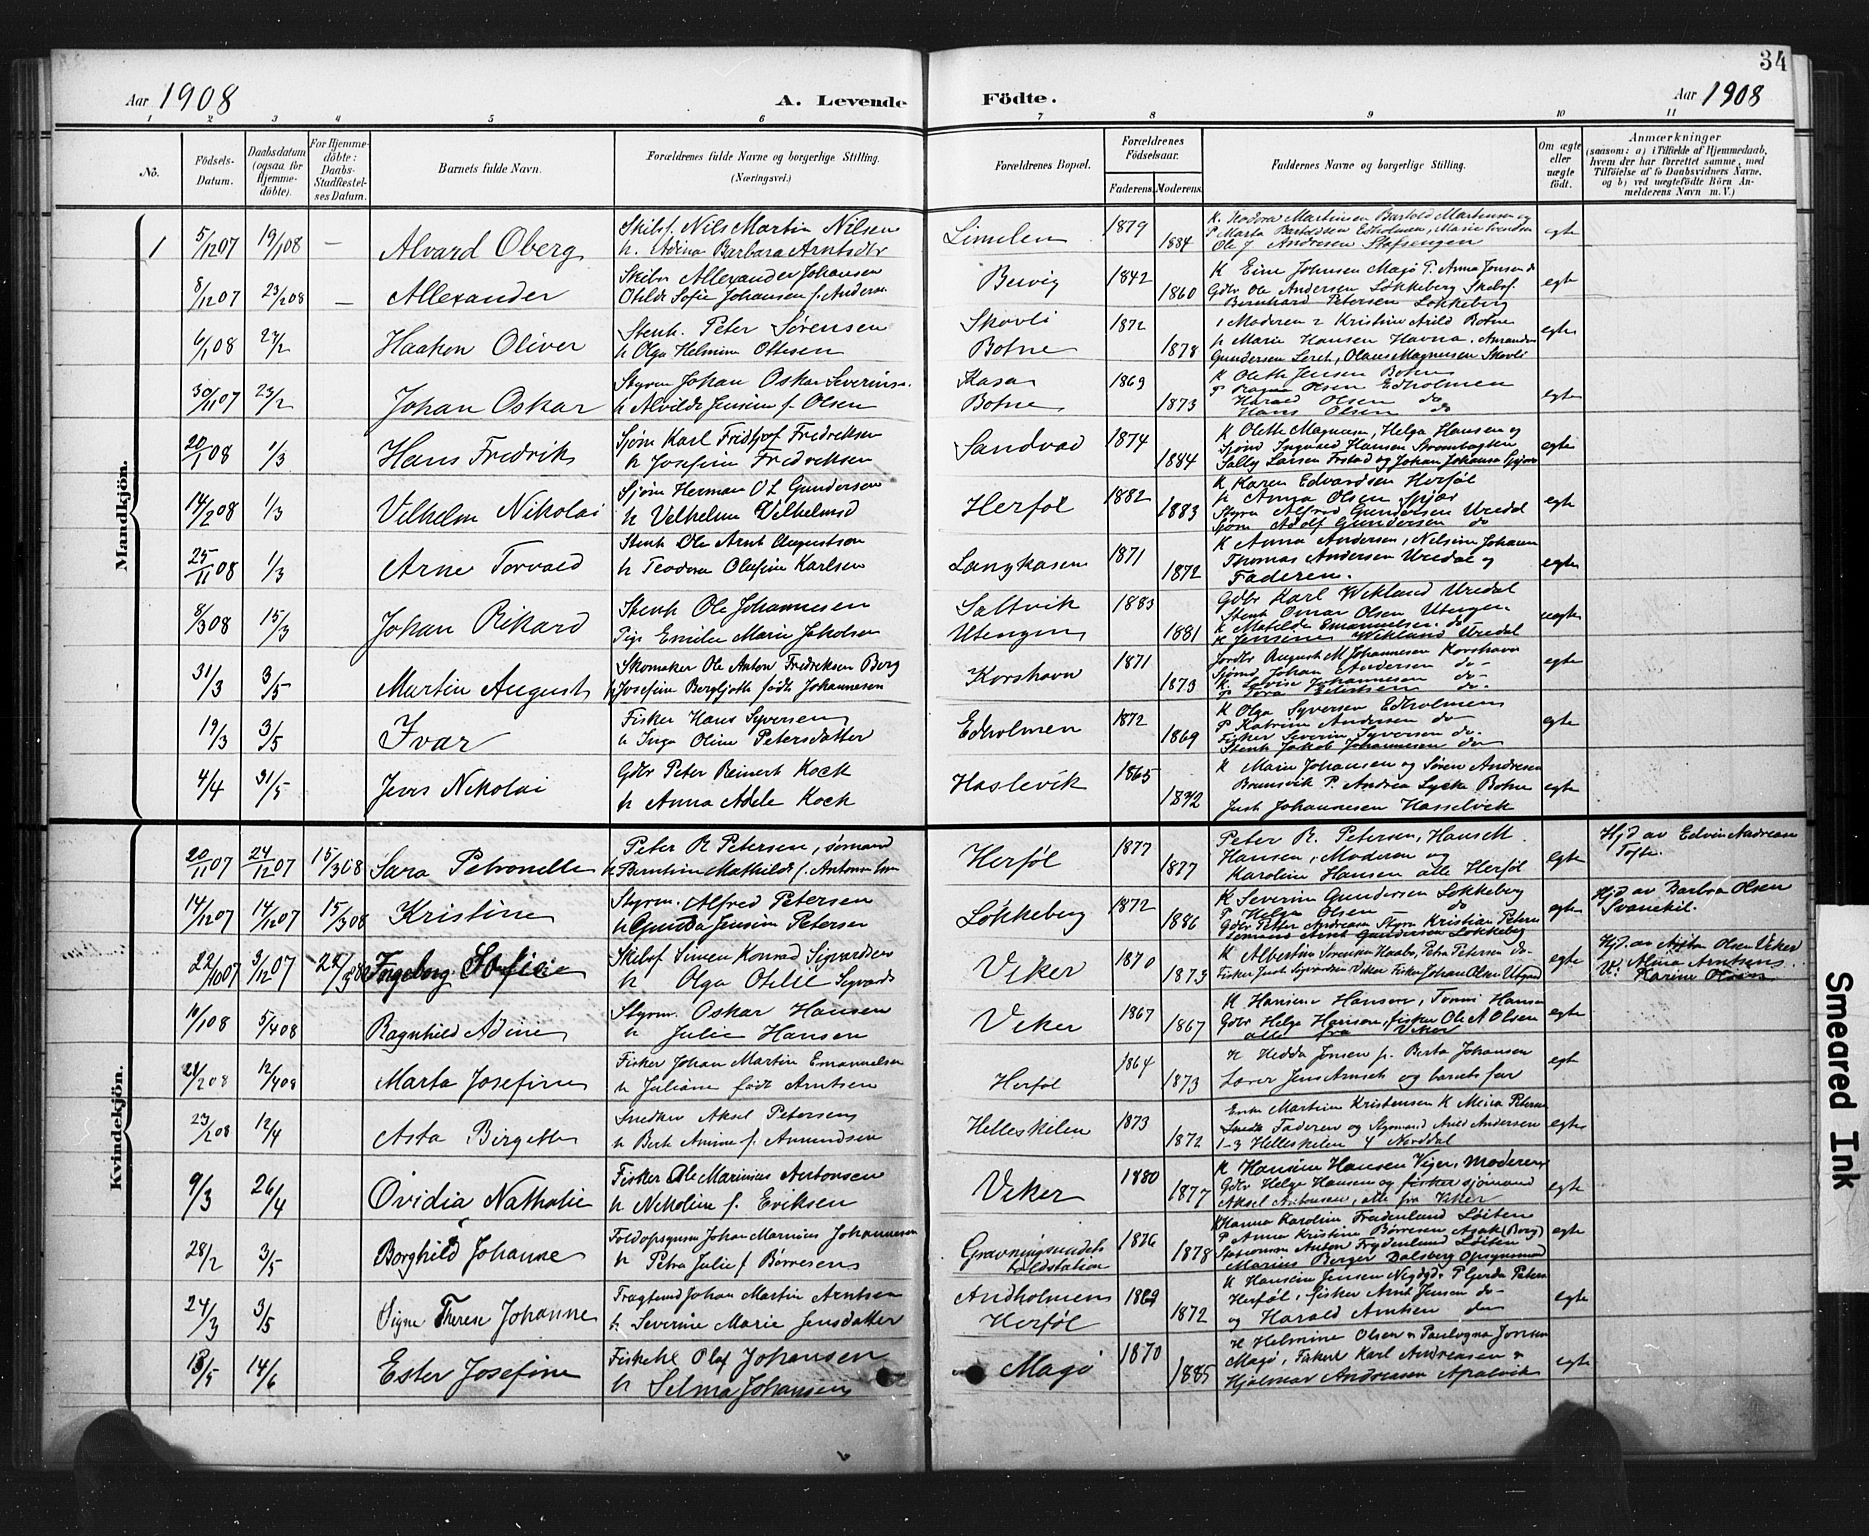 34
Aar 1908 A. Levende Födte. Aar 1908
1 2 3 4 5 6 7 8 9 10 11
No. Födsels-Datum. Daabsdatum (ogsaa for Hjemme-döbte). For Hjemme-döbte: Daabs-Stadfæstel-ses Datum. Barnets fulde Navn. Forældrenes fulde Navne og borgerlige Stilling. (Næringsvei.) Forældrenes Bopæl. Forældrenes Födselsaar. Faderens. Moderens. Faddernes Navne og borgerlige Stilling. Om ægte eller uægte födt. Anmærkninger (saasom: a) i Tilfælde af Hjemmedaab, hvem der har forrettet samme, med Tilföielse af to Daabsvidners Navne, og b) ved uægtefödte Börn An-melderens Navn m. V.)
Mandkjön.
1 5/12 07 19/1 08 — Alvard Oberg
Skibsf. Nils Martin Nilsen
h. Adina Barbara Arntsdtr
Limelen 1879 1884
Ole J Andresen Stafsengen
egte
8/12 07 23/2 08 — Allexander
Skibsr Allexander Johansen
Otilde Sofie Johansen f. Anderse
Bervig 1842 1860
K Eine Johnsen Magö P. Anna Jonsen do
Gdbr Ole Andersen Løkkeberg Skolsf
Bernhard Petersen Løkkeberg
egte
6/1 08 23/2 Haakon Oliver
Stenh. Peter Sørensen
h Olga Helmine Ottesen
Skovli
Botne
1872 1878
1 Moderen 2 Kristine Arild Botne
h Marie Hansen Havna, Amandus
Gundersen Lerch, Olaus Magnussen Skovli
egte
30/11 07 23/2 Johan Oskar
Styrm Johan Oskar Severins.
h Alvilde Jensine f. Olsen
Kasa
Botne
1869 1873
K Oleth Jensen Botne
P Ragna Olsen Edholmen
Harald Olsen do
Hans Olsen do
egte
20/1 08 1/3 Hans Fredrik
Sjøm Karl Fridtjof Fredriksen
h Josefine Fredriksen
Sandvad 1874 1884
K Oleth Magnusen, Helga Hansen og
Sjømd Ingvald Hansen Strømbagken
Sally Larsen Frstad og Johan Johansen Spjær
egte
14/2 08 1/3 Vilhelm Nikolai
Sjøm Herman O L Gundersen
h Velhelmine Vilhelmsd
Herføl 1882 1883
K Karen Edvardsen Herføl
h Anna Olsen Spjær
Styrm Alfred Gundersen Urdal
Sjøm Adolf Gundersen do
egte
25/11 08 1/3 Arne Torvald
Stenh Ole Arnt Augustson
h Teodora Olufine Karlsen
Langkasen 1871 1872
K Anna Andersen, Nelsine Johansen
Thomas Andersen Urdal og
Faderen.
egte
8/3 08 15/3 Johan Rikard
Stenh Ole Johannesen
Pige Emilie Marie Jakobsen
Saltvik
Utengen
1883 1881
Gdbr Karl Wikland Urdal
Stenh Omar Olsen Utengen
K Matilde Emanuelsen do
K Jensine Wikland Urdal
uegte
31/3 3/5 Martin August
Skomaker Ole Anton Fredriksen Borg
h Josefine Bergljoth født Johannesen
Korshavn 1871 1873
Jordbr August M Johannesen Korshavn
Sjømd Johan Andersen do
K Lovise Johannesen do
P Tora Eilertsen do
egte
19/3 3/5 Ivar
Fisker Hans Syversen
h Inga Oline Petersdatter
Edholmen 1872 1869
K Olga Syversen Edholmen
P Katrine Andersen do
Fisker Severin Syversen do
Stenh Jakob Johannesen do
egte
4/4 31/5 Jens Nikolai
Gdbr Peter Reinert Kock
h Anna Adele Kock
Haslevik 1865 1872
K Marie Johansen og Søren Andresen
Brunsvik P. Andrea Lycke Botne
Just Johannesen Hasselvik
egte
Kvindekjön.
20/11 07 24/12 07 15/3 08 Sara Petronelle
Peter R Petersen, sømand
h Berntine Mathilde f. Antonsen
Herføl 1877 1877
Peter R. Petersen, Hans M.
Hansen, Moderen og
Karoline Hansen alle Herføl
egte
Hjd av Edvin Andreas
Tofte.
14/12 07 14/12 07 15/3 08 Kristine
Styrm. Alfred Petersen
h Gunda Jensine Petersen
Løkkeberg 1872 1886
K Severine Gundersen Løkkeberg
P Helga Olsen do
Gdbr Petter Andreasen Styrm Kristian Petersen
Sømand Arnt Gundersen Løkkeberg
egte
Hjd av Barbra Olsen
Svanekil.
22/10 07 3/12 07 22/3 08 Ingeborg Sofilie
Skibsf Simen Konrad Sigvardsen
h Olga Otelie Sigvards
Viker 1870 1873
K Albertine Sørensen Haabo, Petra Petersen do
Fisker Just Sigvardsen Viker Fisker Johan Olsen Utgard
egte
Hjd av Olsen Viker
V: Alma Arntsens
Karine Olsen
10/1 08 5/4 08 Ragnhild Adine
Styrm. Oskar Hansen
h Julie Hansen
Viker 1867 1867
K Hansine Hansen, Tomi Hansen
Gdbr Helge Hansen, fisker Ole A Olsen
alle fra Viker
egte
21/2 08 12/4 08 Marta Josefine
Fisker Johan Martin Emanuelsen
h Juliane født Arntsen
Herføl 1864 1873
K Hedda Jensen p. Berta Johansen
Lærer Jens Arnsch og barnets far
egte
23/2 08 12/4 Asta Birgette
Snedker Aksel Petersen
h Bert Amine f. Amundsen
Helleskilen 1873 1872
Enke Martine Kristensen K Meira Petersen
Snedk Faderen og Styrmand Arild Andersen
1-3 Helleskilen 4 Norddal
egte
9/3 26/4 Ovidia Nathalie
Fisker Ole Marinius Antonsen
h Nikoline f. Eriksen
Viker 1880 1877
K Hansine Hansen Viger, Moderen
Gdbr Helge Hansen og fisker sjømand
Aksel Antonsen, alle fra Viker
egte
28/2 3/5 Borghild Johanne
Toldopsynsm Johan Marinius Johannesen
h Petra Julie f Børresen
Gravningsundets
toldstation
1876 1878
K Hanna Karoline Frydenlund Løiten
P Anna Kristine Børresen Asak (Borg)
Stasionsm Anton Frydenlund Løiten
Marius Berger Dalsberg Opsynsmand
egte
24/3 3/5 Signe Therese Johanne
Fragtmd Johan Martin Arntsen
h Severine Marie Jensdatter
Andholmen
Herføl
1869 1872
K Hansine Jensen Negdgd. P Gerda Petersen
Herføl, Fisker Arnt Jensen do
og Harald Arntsen do
egte
18/5 14/6 Ester Josefine
Fiskehl Olaf Johansen
h Selma Johansen
Magö 1870 1885
K Helmine Olsen & Paulogna Jonsen
Magö, Fiskerd Karl Andreasen &
Hjalmar Andreasen Apalvik
egte
Smeared Ink